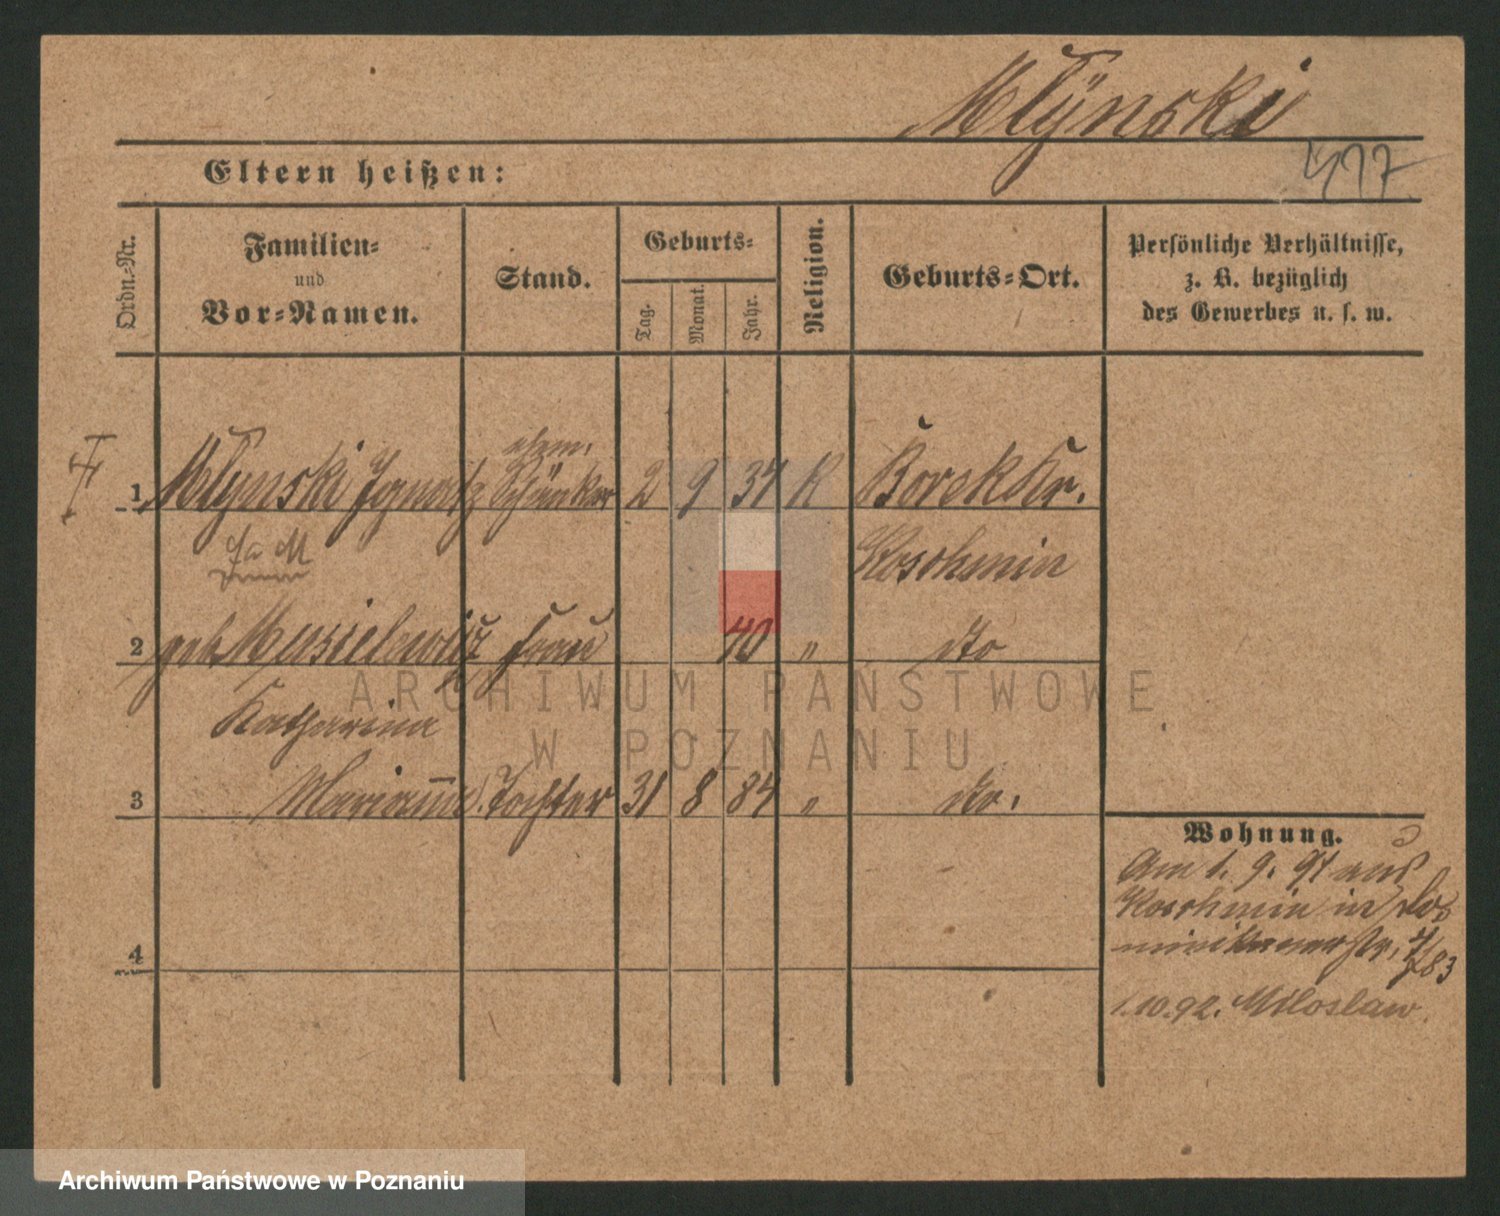 Mlÿnski
417
Eltern heißen:
Ordn.-Nr.
Familien-
und
Vor-Namen.
Stand.
Geburts-
Tag.
Monat.
Jahr.
Religion.
Geburts-Ort.
Persönliche Verhältnisse,
z. B. bezüglich
des Gewerbes u. s. w.
ehem.
1 Mlynski Ignatz Schänker 2 9 37 K Borek Kr.
Koschmin
2 geb. Musielewicz Frau 40 " dto
Katharina
3 Marianna Tochter 31 8 84 " dto.
4
Wohnung.
Am 1. 9. 91 aus
Koschmin in Do
minikanerstr. 7/83
1.10.92. Miloslaw.
ARCHIWUM PAŃSTWOWE
W POZNANIU
Archiwum Państwowe w Poznaniu